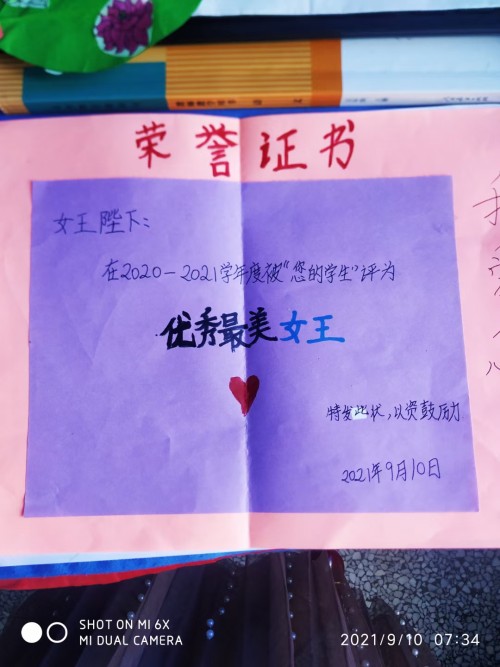 荣誉证书
女王陛下：
在2020-2021学年度被“您的学生”评为
优秀最美女王
特发此状，以资鼓励
2021年9月10日
SHOT ON MI 6X
MI DUAL CAMERA
2021/9/10 07:34